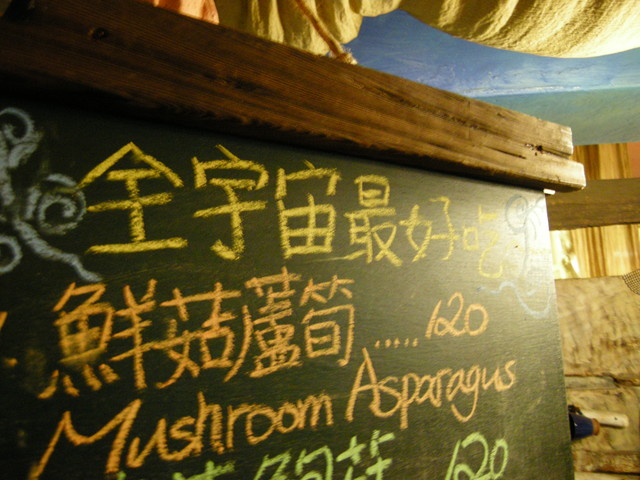 全宇宙最好吃
鮮菇蘆筍.....120
Mushroom Asparagus
120